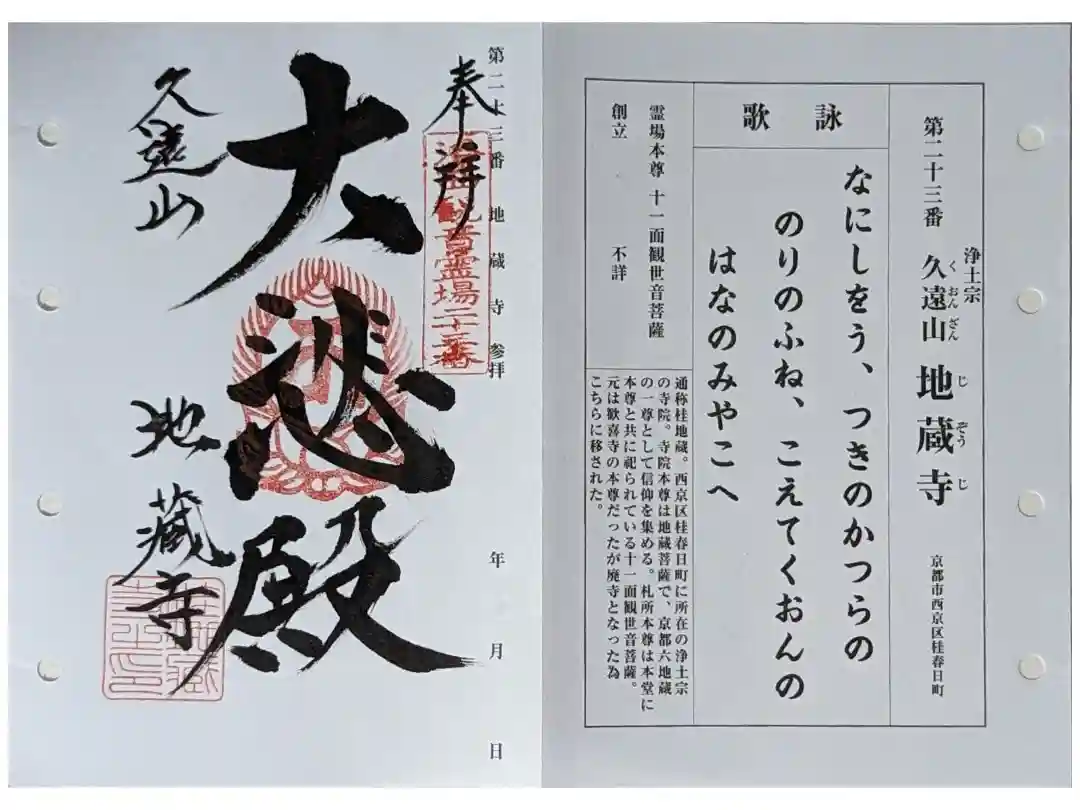 第二十三番
浄土宗
久遠山 地蔵寺
くおんざん じぞうじ
京都市西京区桂春日町
詠歌
なにしをう、つきのかつらの
のりのふね、こえてくおんの
はなのみやこへ
霊場本尊 十一面観世音菩薩
創立 不詳
通称桂地蔵。西京区桂春日町に所在の浄土宗
の寺院。寺院本尊は地蔵菩薩で、京都六地蔵
の一尊として信仰を集める。札所本尊は本堂に
本尊と共に祀られている十一面観世音菩薩。
元は歓喜寺の本尊だったが廃寺となった為
こちらに移された。
第二十三番 地蔵寺 参拝 年 月 日
奉拝
洛西観音霊場二十三番
大悲殿
久遠山 地蔵寺